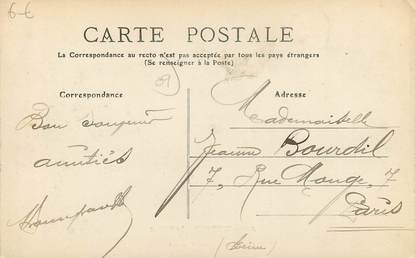 6-6
CARTE POSTALE
La Correspondance au recto n'est pas acceptée par tous les pays étrangers
(Se renseigner à la Poste)
09
Correspondance
Adresse
Bon souvenir
amitiés
Mademoiselle
Jeanne Bourdil
7, Rue Monge, 7
Paris
(Seine)